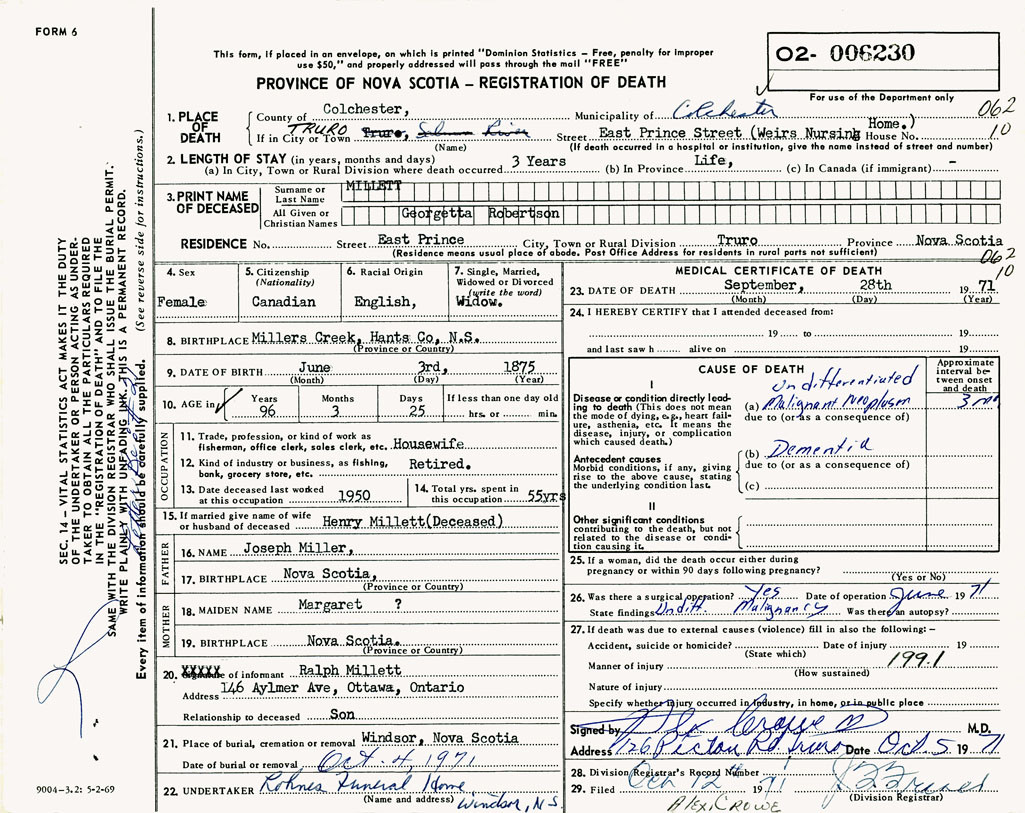 FORM 6
This form, if placed in an envelope, on which is printed "Dominion Statistics – Free, penalty for improper
use $50," and properly addressed will pass through the mail "FREE"
PROVINCE OF NOVA SCOTIA – REGISTRATION OF DEATH
02- 006230
For use of the Department only
062
10
1. PLACE OF DEATH
County of Colchester, Municipality of Colchester
If in City or Town TRURO Truro, Salmon River Street East Prince Street (Weirs Nursing Home.) House No.
(Name) (If death occurred in a hospital or institution, give the name instead of street and number)
2. LENGTH OF STAY (in years, months and days)
(a) In City, Town or Rural Division where death occurred 3 Years (b) In Province Life, (c) In Canada (if immigrant) –
3. PRINT NAME OF DECEASED
Surname or Last Name MILLETT
All Given or Christian Names Georgetta Robertson
RESIDENCE No. Street East Prince City, Town or Rural Division Truro Province Nova Scotia
(Residence means usual place of abode. Post Office Address for residents in rural parts not sufficient)
062
10
4. Sex
Female
5. Citizenship
(Nationality)
Canadian
6. Racial Origin
English,
7. Single, Married,
Widowed or Divorced
(write the word)
Widow.
8. BIRTHPLACE Millers Creek, Hants Co, N.S.
(Province or Country)
9. DATE OF BIRTH June 3rd, 1875
(Month) (Day) (Year)
10. AGE in Years Months Days If less than one day
96 3 25 hrs. or min.
OCCUPATION
11. Trade, profession, or kind of work as
fisherman, office clerk, sales clerk, etc. Housewife
12. Kind of industry or business, as fishing,
bank, grocery store, etc. Retired.
13. Date deceased last worked
at this occupation 1950
14. Total yrs. spent in
this occupation 55yrs
15. If married give name of wife
or husband of deceased Henry Millett(Deceased)
FATHER
16. NAME Joseph Miller,
17. BIRTHPLACE Nova Scotia,
(Province or Country)
MOTHER
18. MAIDEN NAME Margaret ?
19. BIRTHPLACE Nova Scotia.
(Province or Country)
20. XXXXX of informant Ralph Millett
Address 146 Aylmer Ave, Ottawa, Ontario
Relationship to deceased Son
21. Place of burial, cremation or removal Windsor, Nova Scotia
Date of burial or removal Oct. 4, 1971
22. UNDERTAKER Rohnes Funeral Home
(Name and address) Windsor, N.S.
MEDICAL CERTIFICATE OF DEATH
23. DATE OF DEATH September, 28th 19 71
(Month) (Day) (Year)
24. I HEREBY CERTIFY that I attended deceased from:
19 to 19
and last saw h alive on 19
CAUSE OF DEATH
Approximate
interval be-
tween onset
and death
I
Disease or condition directly lead-
ing to death (This does not mean
the mode of dying, e.g., heart fail-
ure, asthenia, etc. It means the
disease, injury, or complication
which caused death.)
Undifferentiated
(a) Malignant Neoplasm
due to (or as a consequence of)
Antecedent causes
Morbid conditions, if any, giving
rise to the above cause, stating
the underlying condition last.
(b) Dementia
due to (or as a consequence of)
(c)
II
Other significant conditions
contributing to the death, but not
related to the disease or condi-
tion causing it.
25. If a woman, did the death occur either during
pregnancy or within 90 days following pregnancy?
(Yes or No)
26. Was there a surgical operation? Yes Date of operation June 19 71
State findings Undiff. Malignancy Was there an autopsy?
27. If death was due to external causes (violence) fill in also the following: –
Accident, suicide or homicide? Date of injury 19
(State which) 199.1
Manner of injury
(How sustained)
Nature of injury
Specify whether injury occurred in industry, in home, or in public place
Signed by Alex Crowe M.D.
Address 126 Picton Rd Truro Date Oct 5 19 71
28. Division Registrar's Record Number
29. Filed Oct 12 1971
(Division Registrar)
ALEX. CROWE
SEC. 14 – VITAL STATISTICS ACT MAKES IT THE DUTY
OF THE UNDERTAKER OR PERSON ACTING AS UNDER-
TAKER TO OBTAIN ALL THE PARTICULARS REQUIRED
IN THE "REGISTRATION OF DEATH" AND TO FILE THE
SAME WITH THE DIVISION REGISTRAR WHO SHALL ISSUE THE BURIAL PERMIT.
WRITE PLAINLY WITH UNFADING INK. THIS IS A PERMANENT RECORD.
Every item of information should be carefully supplied. (See reverse side for instructions.)
9004-3.2: 5-2-69